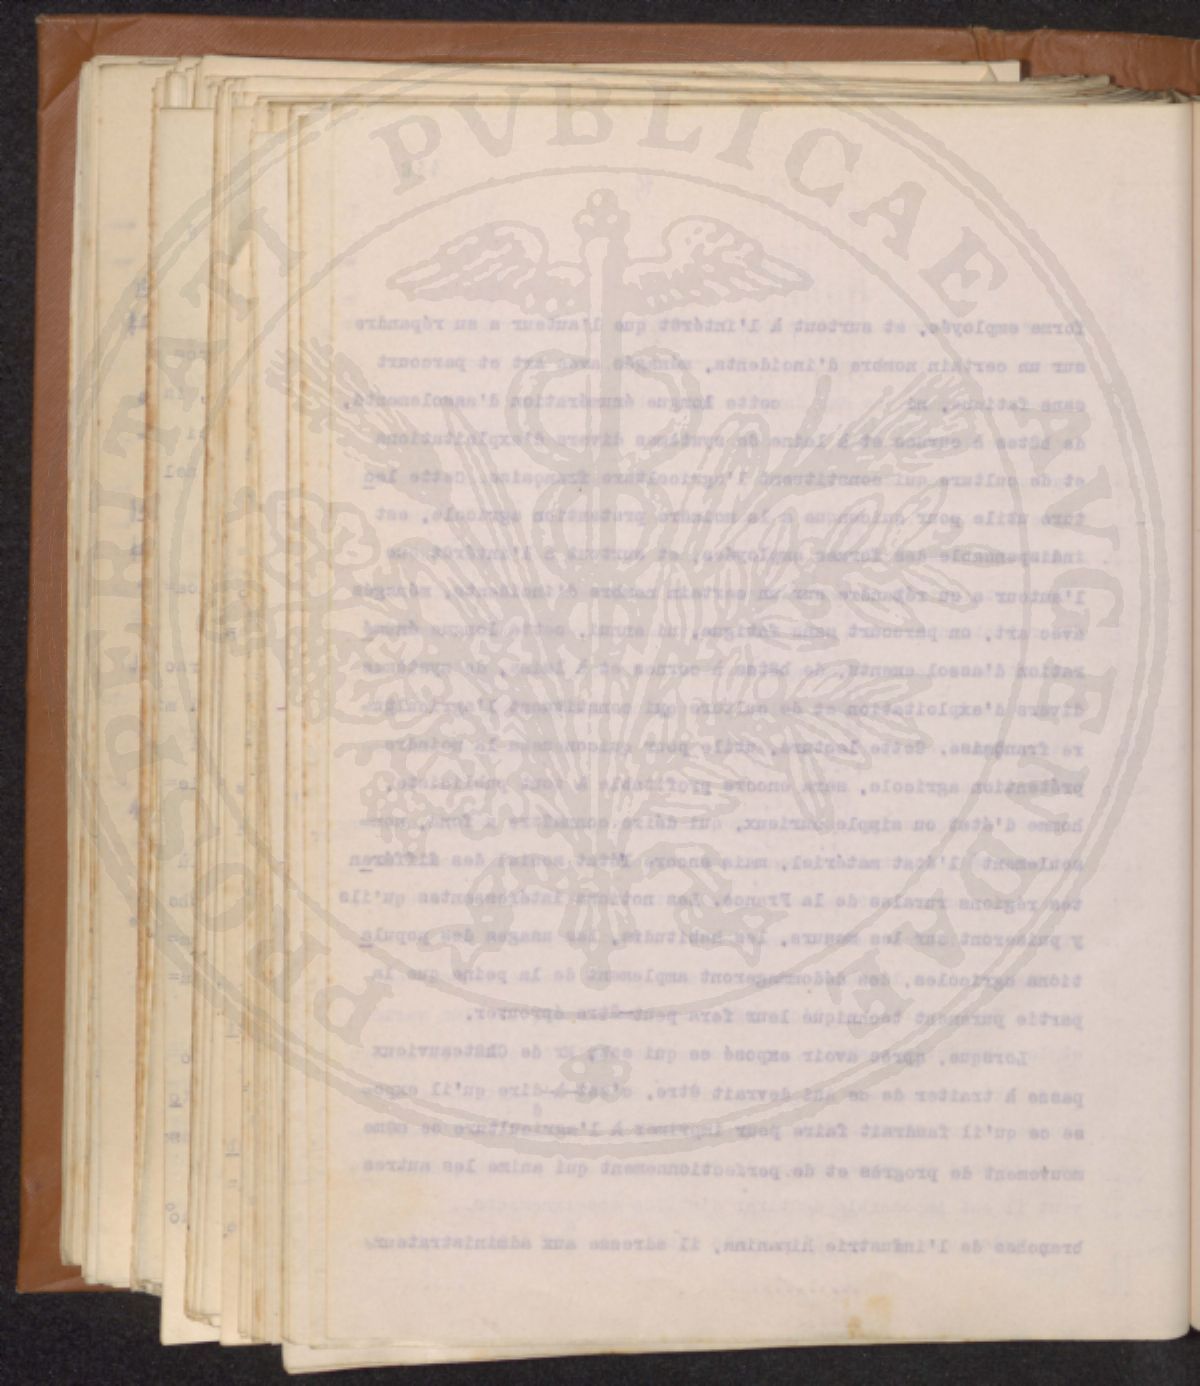 PROSPERITATI PVBLICAE AVGENDAE
forme employée, et surtout à l'intérêt que l'auteur a su répandre
sur un certain nombre d'incidents, ménagés avec art et parcourt
sans fatigue, ni cette longue énumération d'assolements,
de bêtes à cornes et à laine de systèmes divers d'exploitations
et de culture qui constituent l'agriculture française. Cette lec
ture utile pour quiconque a la moindre prétention agricole, est
indispensable des formes employées, et surtout à l'intérêt que
l'auteur a su répandre sur un certain nombre d'incidents, ménagés
avec art, on parcourt sans fatigue, ni ennui, cette longue énumé
ration d'assol ements, de bêtes à cornes et à laine, de systèmes
divers d'exploitation et de culture qui constituent l'agricultu-
re française. Cette lecture, utile pour quiconque a la moindre
prétention agricole, sera encore profitable à tout publiciste,
homme d'état ou simple curieux, qui désire connaître à fond, non-
seulement l'état matériel, mais encore l'état moral des différen
tes régions rurales de la France. Les notions intéressantes qu'ils
y puiseront sur les moeurs, les habitudes, les usages des popula
tions agricoles, les dédommageront amplement de la peine que la
partie purement technique leur fera peut-être éprouver.
Lorsque, après avoir exposé ce qui est, Mr de Châteauvieux
passe à traiter de ce qui devrait être, c'est à dire qu'il expo-
se ce qu'il faudrait faire pour imprimer à l'agriculture ce même
mouvement de progrès et de perfectionnement qui anime les autres
branches de l'industrie humaine, il adresse aux administrateur